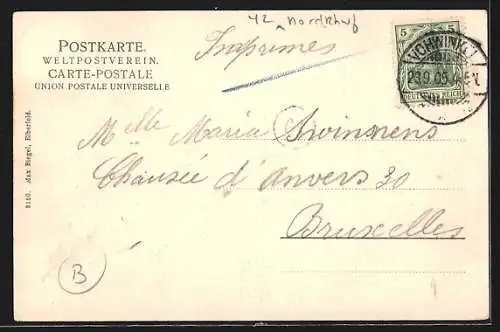 42 Nordkhof
POSTKARTE.
WELTPOSTVEREIN.
CARTE-POSTALE
UNION POSTALE UNIVERSELLE
Imprimés
5 5
VOHWINKEL
DEUTSCHES REICH
Melle Maria Swinnens
Chausée d'Anvers 30
Bruxelles
9150. Max Biegel, Elberfeld.
B